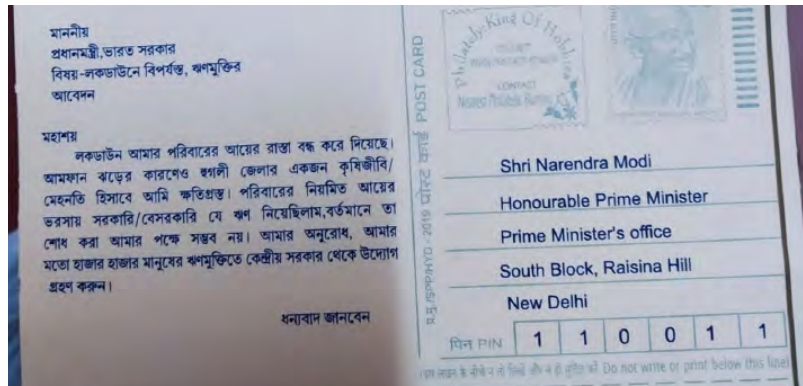 মাননীয়
প্রধানমন্ত্রী,ভারত সরকার
বিষয়-লকডাউনে বিপর্যস্ত, ঋণমুক্তির
আবেদন
মহাশয়
লকডাউন আমার পরিবারের আয়ের রাস্তা বন্ধ করে দিয়েছে।
আমফান ঝড়ের কারণেও হুগলী জেলার একজন কৃষিজীবি/
মেহনতি হিসাবে আমি ক্ষতিগ্রস্ত। পরিবারের নিয়মিত আয়ের
ভরসায় সরকারি/বেসরকারি যে ঋণ নিয়েছিলাম,বর্তমানে তা
শোধ করা আমার পক্ষে সম্ভব নয়। আমার অনুরোধ, আমার
মতো হাজার হাজার মানুষের ঋণমুক্তিতে কেন্দ্রীয় সরকার থেকে উদ্যোগ
গ্রহণ করুন।
ধন্যবাদ জানবেন
पोस्ट कार्ड POST CARD
Philately-King Of Hobbies
CONTACT
Nearest Philatelic Bureau
Shri Narendra Modi
Honourable Prime Minister
Prime Minister's office
South Block, Raisina Hill
New Delhi
पिन PIN 1 1 0 0 1 1
Do not write or print below this line